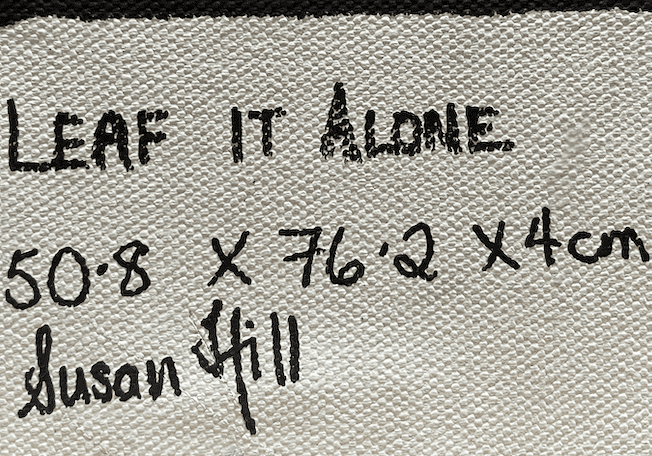 LEAF IT ALONE.
50.8 X 76.2 X 4cm
Susan Hill